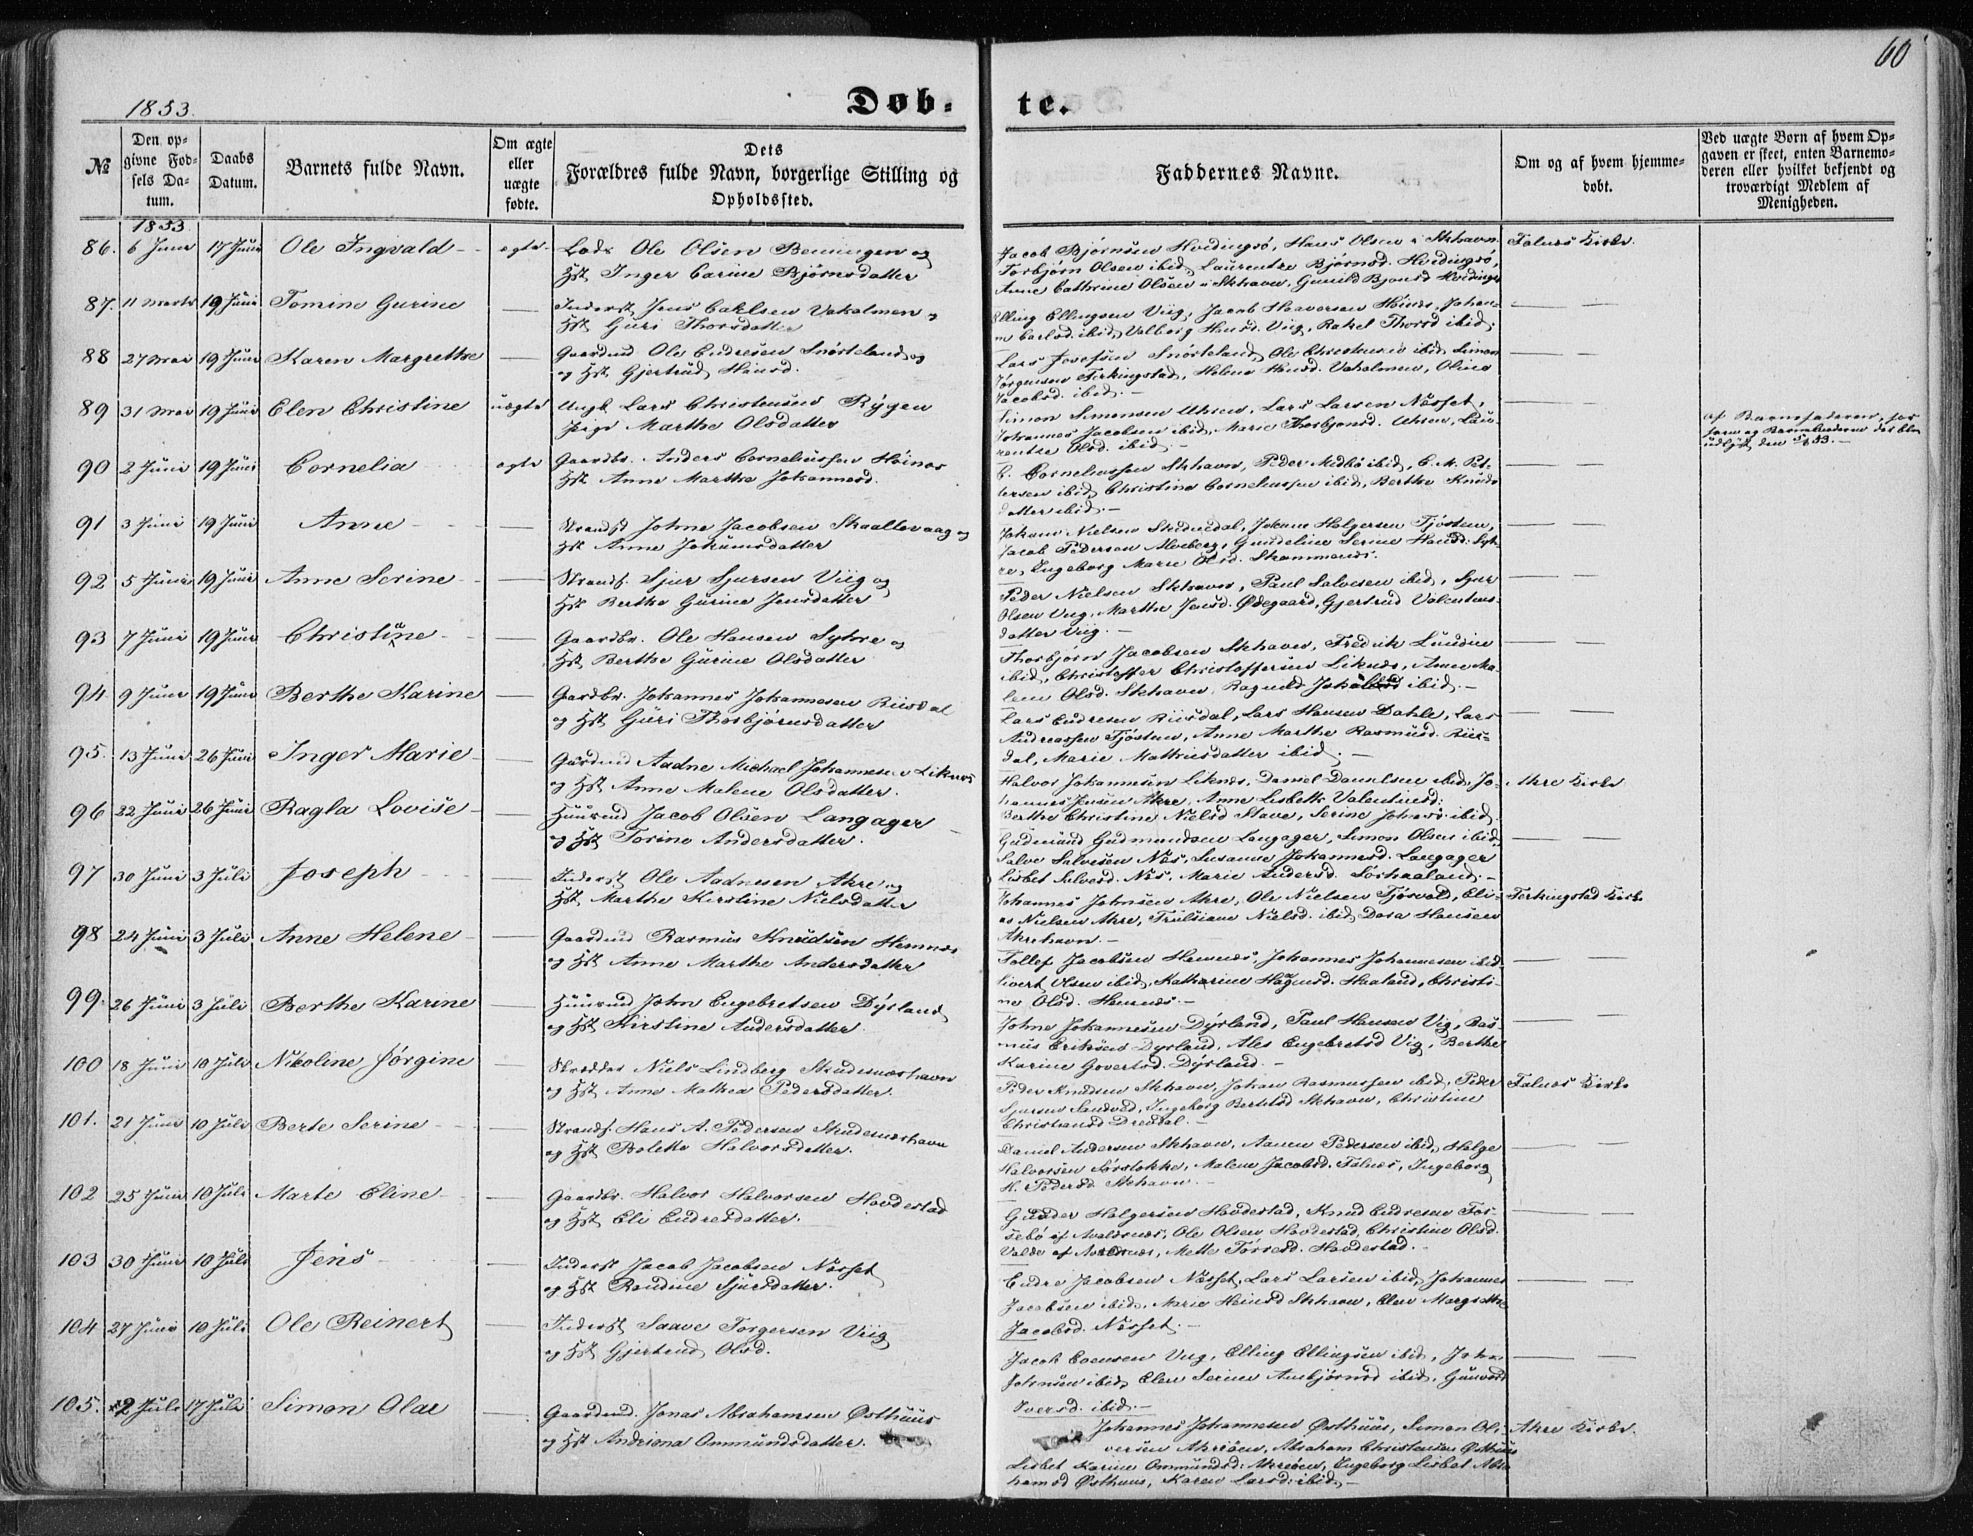 60
1853.
Døb-
te.
№
Den op-
givne Fød-
sels Da-
tum.
Daabs
Datum.
Barnets fulde Navn.
Om ægte
eller
uægte
fødte.
Dets
Forældres fulde Navn, borgerlige Stilling og
Opholdssted.
Faddernes Navne.
Om og af hvem hjemme-
døbt.
Ved uægte Børn af hvem Op-
gaven er skeet, enten Barnemo-
deren eller hvilket bekjendt og
troværdigt Medlem af
Menigheden.
1853
86. 6 Juni 17 Juni Ole Ingvald ægte Lods Ole Olsen Benningen og
Hst Inger Carine Bjørnsdatter
Jacob Bjørnsen Hvidingsø, Hans Olsen i Skhavn
Torbjørn Olsen ibid, Laurentze Bjørnsd. Hvidingsø,
Anne Cathrine Olsen i Skhavn, Gunild Bjønsd Hvidingsø
Falnes Kirke.
87. 11 Marts 19 Juni Tomine Gurine — Inderst Jens Carlsen Vakalmen og
Hst Guri Thorsdatter
Elling Ellingsen Viig, Jacob Haaversen Hønes, Johan-
ne Carlsd. ibid, Valborg Hansd. Viig, Rakel Thorsd ibid.
— —
88 27 Mai 19 Juni Karen Margrethe — Gaardmd Ole Endresen Snørteland og
og Hst Gjertrud Hansd.
Lars Josefsen Snørteland, Ole Christensen ibid, Simon
Jørgensen Ferkingstad, Helene Hansd. Vakalmen, Oline
Jacobsd. ibid. —
— —
89 31 Mai 19 Juni Elen Christine uægte Ungk Lars Christensen Rygen
Pige Marthe Olsdatter
Simon Simonsen Uhren, Lars Larsen Nøsset,
Johannes Jacobsen ibid, Marie Thorbjønsd. Uhren, Lau-
rentze Olsd. ibid. —
af Barnefaderen,
90 2 Juni 19 Juni Cornelia ægte Gaardbr. Anders Corneliussen Høines
Hst Anne Marthe Johannesd.
C. Corneliussen Skhavn, Peder Medbø ibid, C. M. Pet-
tersen ibid, Christine Corneliussen ibid, Berthe Knuds
datter ibid. —
— —
91 3 Juni 19 Juni Anne — Strandst Johne Jacobsen Skaallevaag og
Hst Anne Johannesdatter
Johan Nielsen Skednedal, Johanne Holgersen Tjøsten,
Jacob Pedersen Alveberg, Gundeline Serine Hansd. Syt-
re, Ingeborg Marie Olsd. Strømmenes.
— —
92 5 Juni 19 Juni Anne Serine — Strands. Sjur Sjursen Viig og
Hst Berthe Gurine Jensdatter
Peder Nielsen Skhavn, Paul Salvesen ibid, Sjur
Olsen Viig, Marthe Jensd. Ødegaard, Gjertrud Valentins-
datter Viig. —
— —
93 7 Juni 19 Juni Christine — Gaardbr. Ole Hansen Sytre og
Hst Berthe Gurine Olsdatter
Thorbjørn Jacobsen Skhavn, Fredrik Lundin
ibid, Christoffer Christoffersen Liknes, Anne Ma-
lene Olsd. Skhavn, Ragnild ibid. —
— —
94. 9 Juni 19 Juni Berthe Karine — Gaardbr. Johannes Johannesen Riisdal
og Hst Guri Thorbjørnsdatter
Lars Endresen Riisdal, Lars Hansen Dahle, Lars
Andreassen Tjøsten, Anne Marthe Rasmusd. Riis-
dal, Marie Mathiesdatter ibid. —
— —
95. 13 Juni 26 Juni Inger Marie — Gaardmd Aadne Michael Johannesen Liknes
og Hst Anne Malene Olsdatter.
Halvor Johannesen Liknes, Daniel Danielsen ibid, Jo-
hannes Jensen Akre, Anne Lisbeth Valentinsd.
Berthe Christine Nielsd Stave, Serine Johnsd. ibid
Akre Kirke
96 22 Juni 26 Juni Ragla Lovise — Huusmd Jacob Olsen Langager
og Hst Torine Andersdatter.
Gudmund Gudmundsen Langager, Simon Olsen ibid,
Salve Salvesen Næs, Susanne Johannesd. Langager
Lisbet Salvesd. Næs, Marie Andersd. Sørhaaland. —
— —
97 30 Juni 3 Juli Joseph — Inderst Ole Aadnesen Akre og
Hst Marthe Kirstine Nielsdatter
Johannes Johnsen Akre, Ole Nielsen Tjøsvold, Eli-
as Nielsen Akre, Nielsd. ibid Dora Hansen
Akrehavn. —
Ferkingstad Kirke
98 24 Juni 3 Juli Anne Helene — Gaardmd Rasmus Knudsen Hemnæs
og Hst Anne Marthe Andersdatter
Tollef Jacobsen Hemnæs, Johannes Johannesen ibid
Sivert Olsen ibid, Katharine Haagensd. Haaland, Christi-
ne Olsd. Hemnæs. —
— —
99. 26 Juni 3 Juli Berthe Karine — Huusmd John Engebretsen Dyrland
og Hst Kirstine Andersdatter
Johne Johannesen Dyrland, Paul Hansen Vig, Ras-
mus Eriksen Dyrland, Ales Engebretsd Vig, Berthe
Karine Govertsd. Dyrland. —
— —
100 18 Juni 10 Juli Nicoline Jørgine — Skrædder Niels Lindberg Skudesnæshavn
og Hst Anne Mathea Pedersdatter.
Peder Knudsen Skhavn, Johan Rasmussen ibid, Peder
Sjursen Sandved, Ingeborg Bertelsd Skhavn, Christine
Christiansd Dredal. —
Falnes Kirke
101. 21 Juni 10 Juli Berte Serine — Strands. Hans A. Pedersen Skudesnæshavn
og Hst Bolette Halvorsdatter.
Daniel Andersen Skhavn, Aanen Pedersen ibid, Helge
Halvorsen Sørstokke, Malene Jacobsd. Falnes, Ingeborg
H. Pedersd Skhavn. —
— —
102 25 Juni 10 Juli Marte Eline — Gaardbr. Halvor Halvorsen Hovdestad
og Hst Eli Endresdatter.
Gunder Holgersen Hovdestad, Knud Endresen Fos-
sebø af Avaldsnæs, Ole Olsen Hovdestad, Christine Olsd.
Valde af Avaldsnæs, Mette Torresd. Hovdestad. —
— —
103 30 Juni 10 Juli Jens — Inderst Jacob Jacobsen Nøsset
og Hst Randine Sjursdatter.
Endre Jacobsen Nøsset, Lars Larsen ibid, Johannes
Jacobsen ibid, Marie Heinsd Skhavn, Elen Margrethe
Jacobsd. Nøsset. —
— —
104 27 Juni 10 Juli Ole Reinert — Inderst Saave Torgersen Viig
og Hst Gjertrud Olsd.
Jacob Evensen Viig, Elling Ellingsen ibid, John
Johnsen ibid, Elen Serine Ambjørnsd ibid, Gunvor
Iversd. ibid. —
— —
105. 2 Juli 17 Juli Simon Olai — Gaardmd. Jonas Abrahamsen Østhuus
og Hst Andriana Ommundsdatter.
Johannes Johannesen Østhuus, Simon Ol-
versen Akreøen, Abraham Christensen Østhuus
Lisbet Karine Ommundsd. Akreøen, Engeborg Lisbet Abra
hamsd Østhuus, Karen Larsd. ibid. —
Akre Kirke.